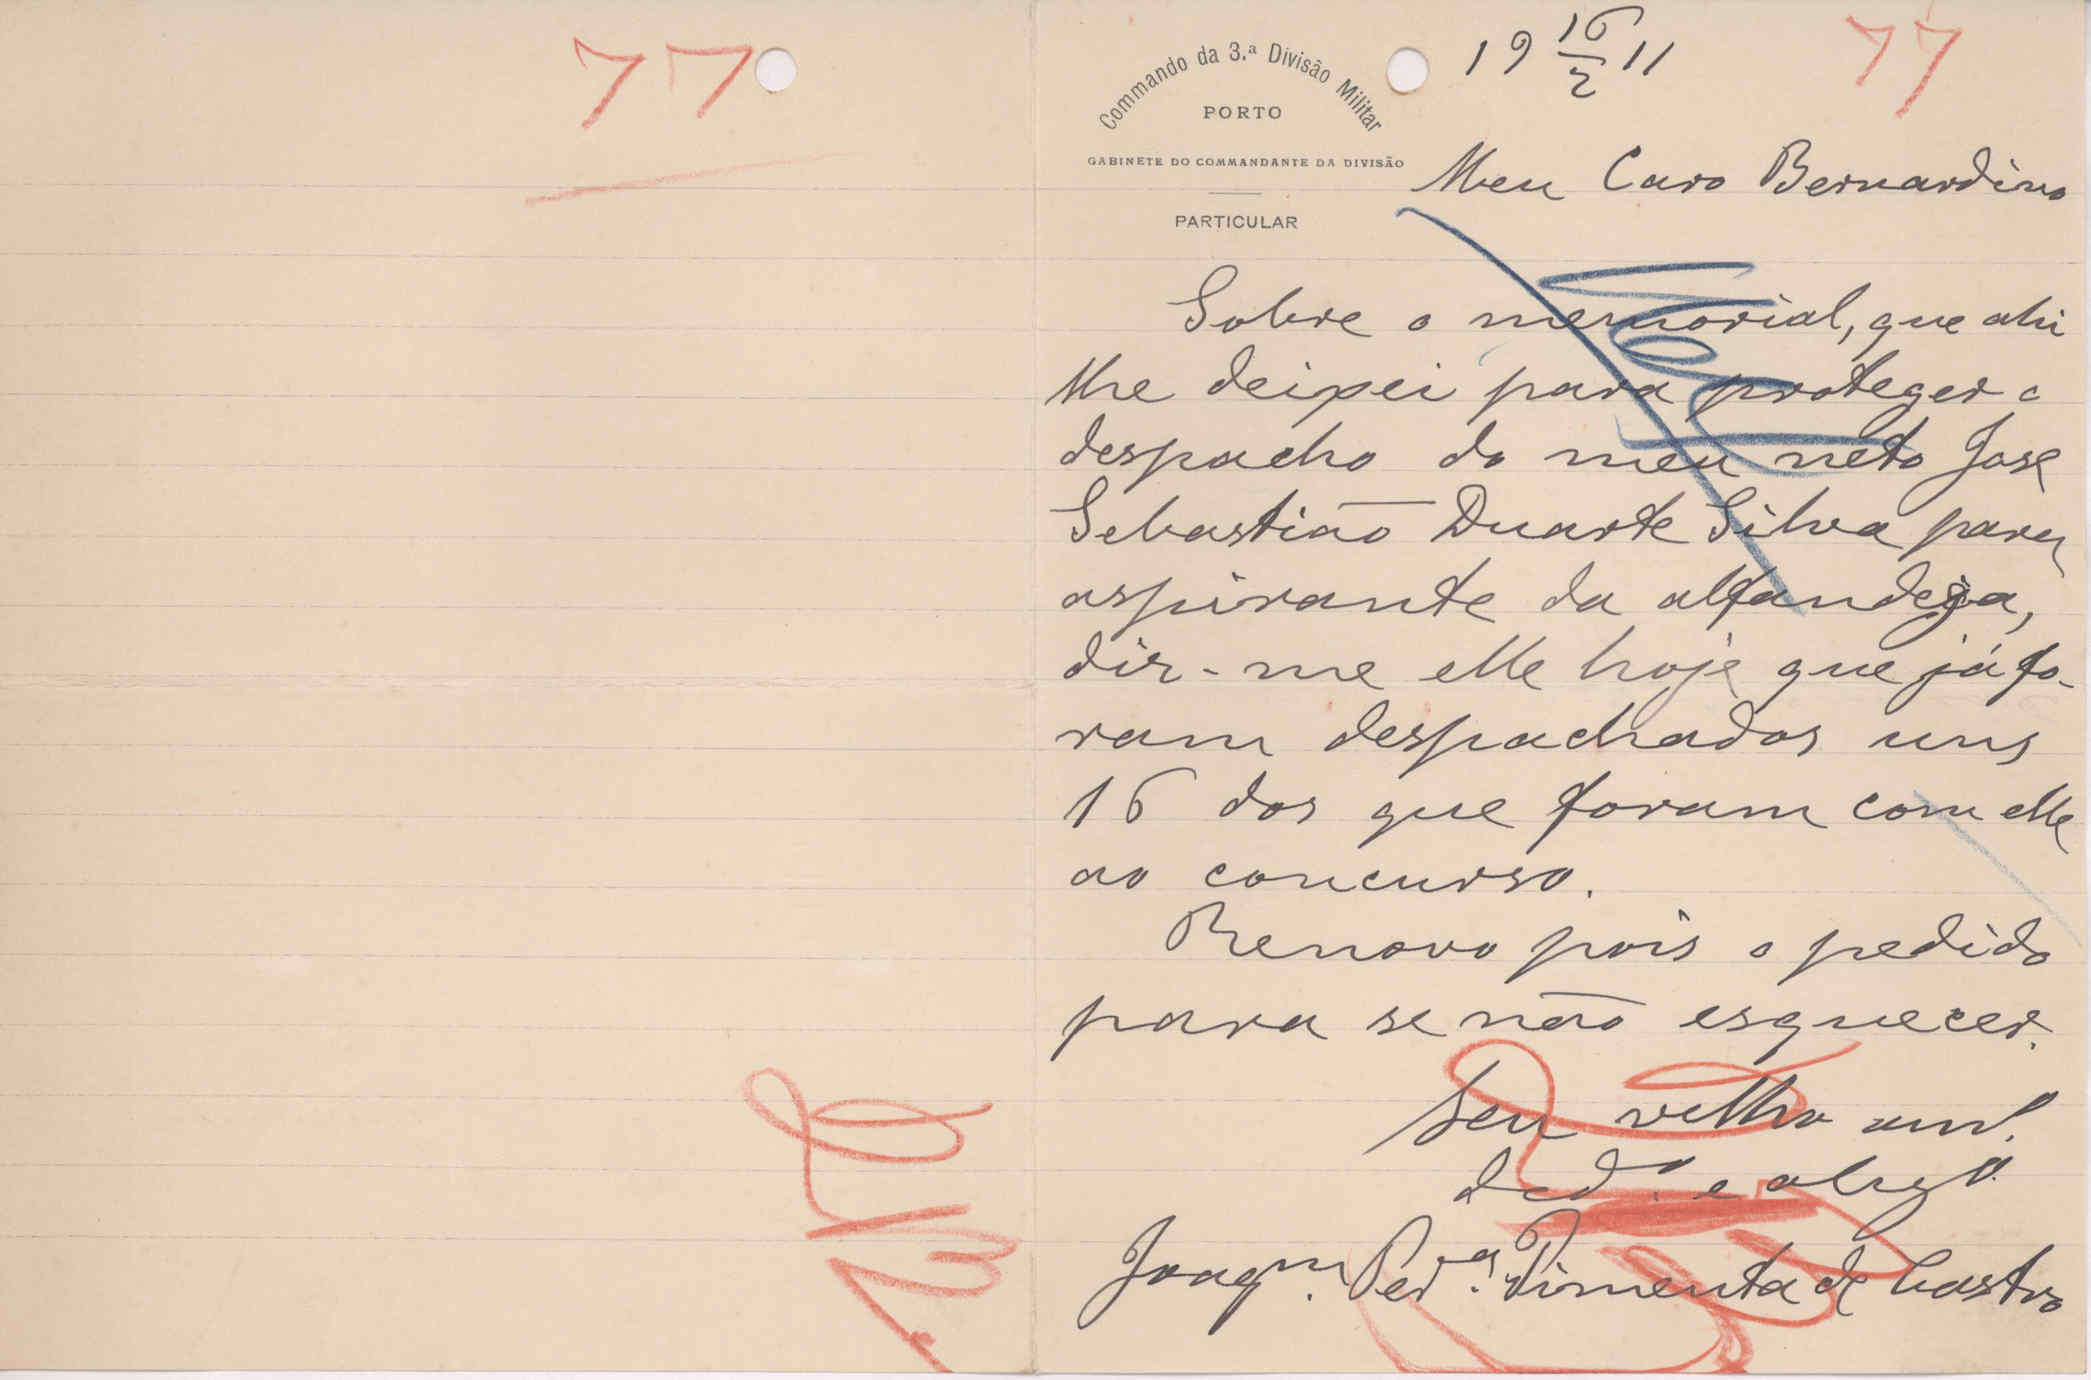 77
Commando da 3.ª Divisão Militar
PORTO
GABINETE DO COMMANDANTE DA DIVISÃO
PARTICULAR
19 16/2 11
77
Meu Caro Bernardino
Sobre o memorial, que ahi
lhe deixei para proteger o
despacho do meu neto José
Sebastião Duarte Silva para
aspirante da alfandega,
diz-me elle hoje que já fo-
ram despachados uns
16 dos que foram com elle
ao concurso.
Renovo pois o pedido
para se não esquecer.
Seu velho am.º
ded.º e obrg.º
Joaq.m Per.ª Pimenta de Castro